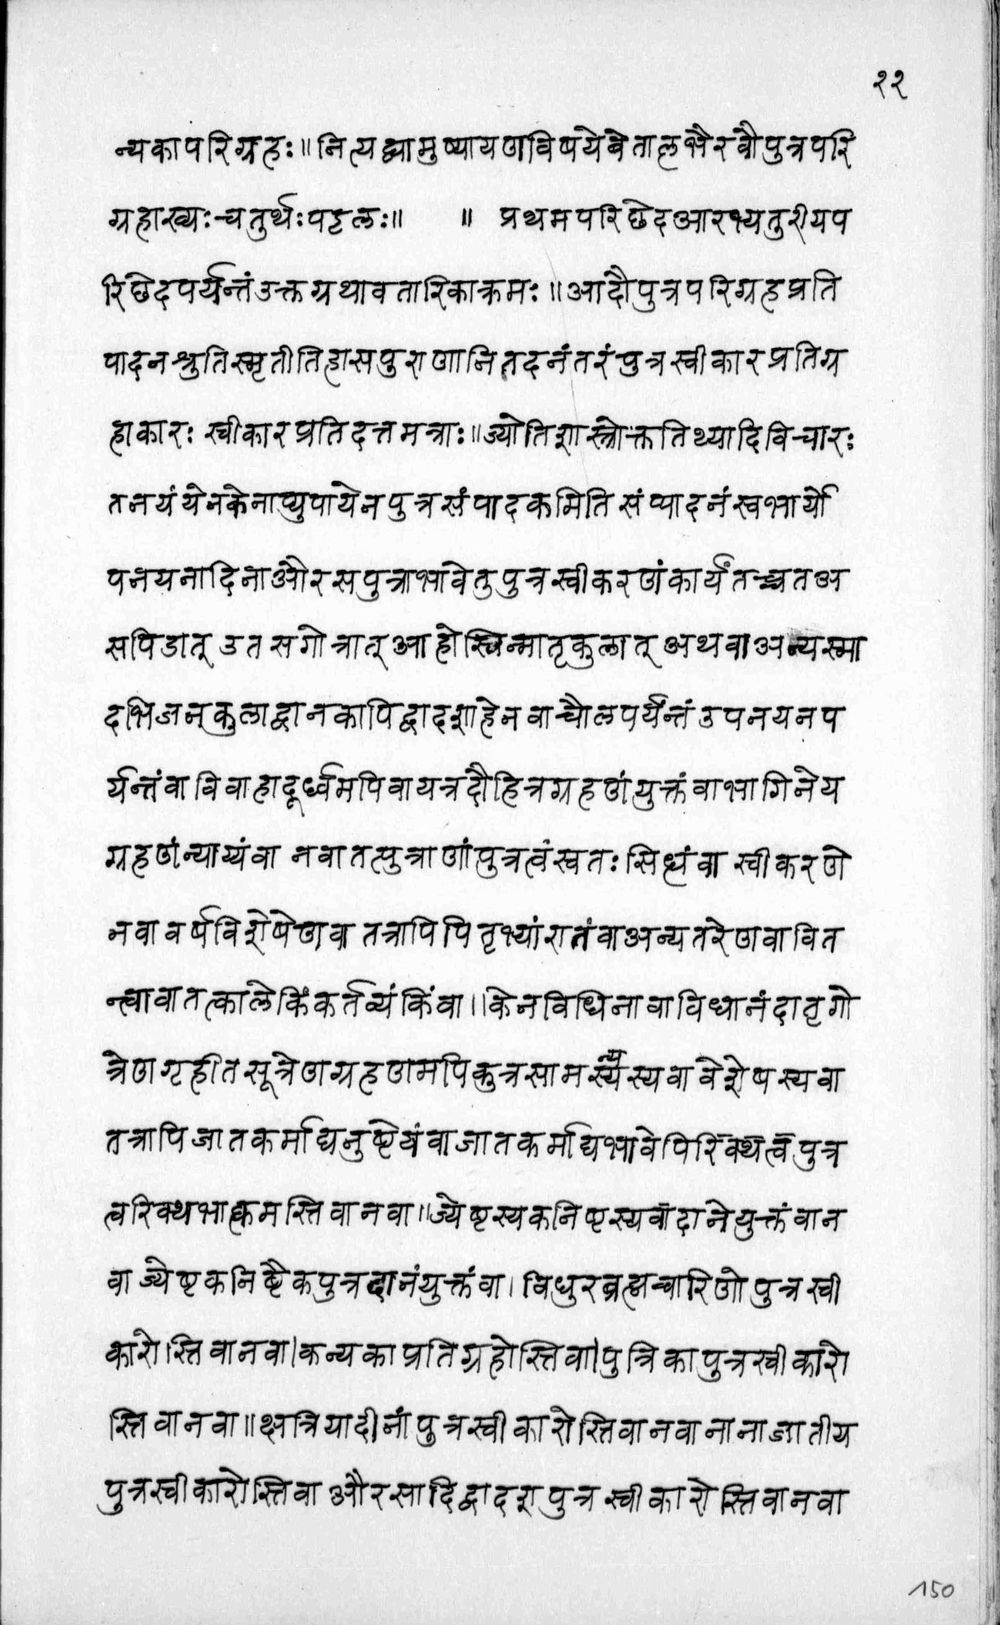 ११
न्यकापरिग्रहः॥नित्यद्व्यामुष्यायणविषयेवेतालभैरवौपुत्रपरि
ग्रहाख्यःचतुर्थःपट्टलः॥ ॥ प्रथमपरिछेदआरभ्यतुरीयप
रिछेदपर्यन्तंउक्तग्रथावतारिकाक्रमः॥आदौपुत्रपरिग्रहप्रति
पादनश्रुतिस्मृतीतिहासपुराणानितदनंतरंपुत्रस्वीकारप्रतिग्र
हाकारः स्वीकारप्रतिदत्तमन्त्राः॥ज्योतिशास्त्रोक्ततिथ्यादिविचारः
तनयंयेनकेनाप्युपायेनपुत्रसंपादकमितिसंप्यादनंस्वभार्यो
पनयनादिनाऔरसपुत्राभावेतुपुत्रस्वीकरणंकार्यंतच्चतअ
सपिडात् उतसगोत्रात्आहोस्विन्मातृकुलात्अथवाअन्यस्मा
दभिजन्कुलाद्वानकापिद्वादशाहेनवाचौलपर्यंन्तंउपनयनप
र्यन्तंवाविवाहादूर्ध्वमपिवायत्रदौहित्रग्रहणंयुक्तंवाभागिनेय
ग्रहणंन्याय्यंवा नवातत्पुत्राणांपुत्रत्वंस्वतःसिध्यंवा स्वीकरणे
नवावर्षविशेषेणवा तत्रापिपितृभ्यांरातंवाअन्यतरेणवावित
न्त्वावातत्कालेकिंकर्तव्यंकिंवा॥केनविधिनावाविधानंदातृगो
त्रेणगृहीतसूत्रेणग्रहणमपिकुत्रसामर्स्थ्यस्यवावेशेषस्यवा
तत्रापिजातकर्माद्यनुष्टेयंवाजातकर्माद्यभावेपिरिक्थत्वंपुत्र
त्वरिक्थभाक्त्वमस्तिवानवा॥ज्येष्टस्यकनिष्टस्यवादानेयुक्तंवान
वाज्येष्टकनिष्टैकपुत्रदानंयुक्तंवा।विधुरब्रह्मचारिणोपुत्रस्वी
कारो।स्तिवानवा।कन्यकाप्रतिग्रहोस्तिवा।पुत्रिकापुत्रस्वीकारो
स्तिवानवा॥क्षत्रियादीनांपुत्रस्वीकारोस्तिवानवानानाजातीय
पुत्रस्वीकारोस्तिवाऔरसादिद्वादशपुत्रस्वीकारोस्तिवानवा
150